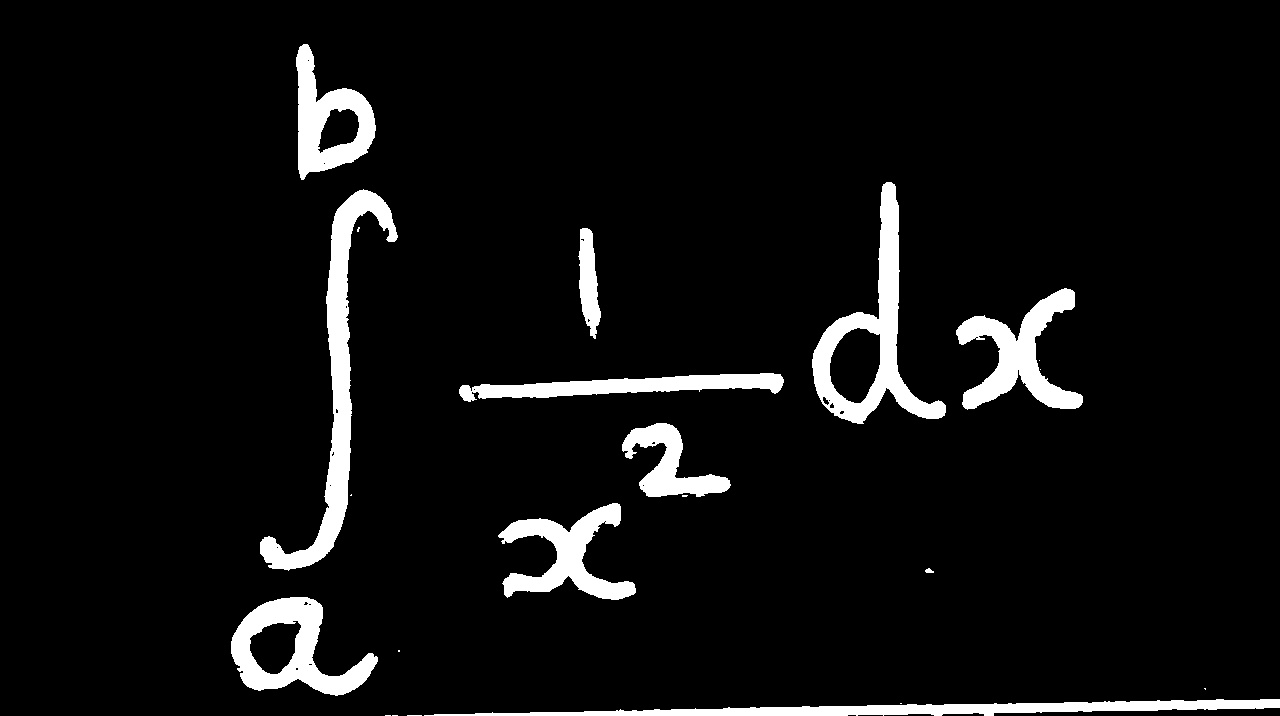 ∫_a^b 1/x² dx